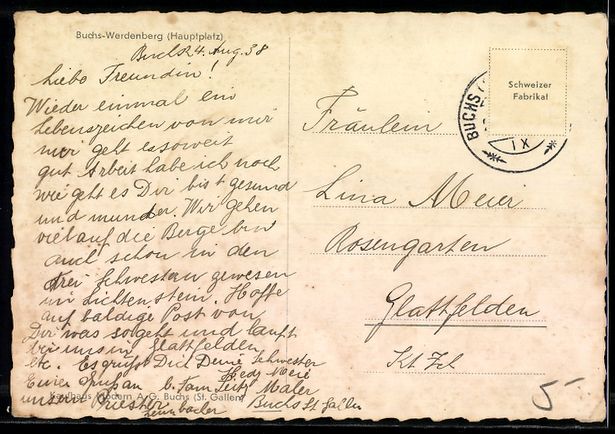 Buchs-Werdenberg (Hauptplatz)
Buchs 24. Aug. 38
Liebe Freundin!
Wieder einmal ein
Lebenszeichen von mir
mir geht es soweit
gut Arbeit habe ich noch
wie geht es Dir bist gesund
und munder. Wir gehen
viel auf die Berge bin
auch schon in den
drei Schwestern gewesen
in Lichtenstein. Hoffe
auf baldige Post von
Dir was so geht und lauft
bei uns in Glattfelden
etc. Es grüsst Dich Deine Schwester
Hedy Meie
Einen Gruss an b. Fam. Seitz Maler
unsern Priester
Buchs St. Gallen
Kaufhaus Modern A. G. Buchs (St. Gallen)
Schweizer
Fabrikat
BUCHS
IX
Fräulein
Lina Meier
Rosengarten
Glattfelden
Kt Zch
5-